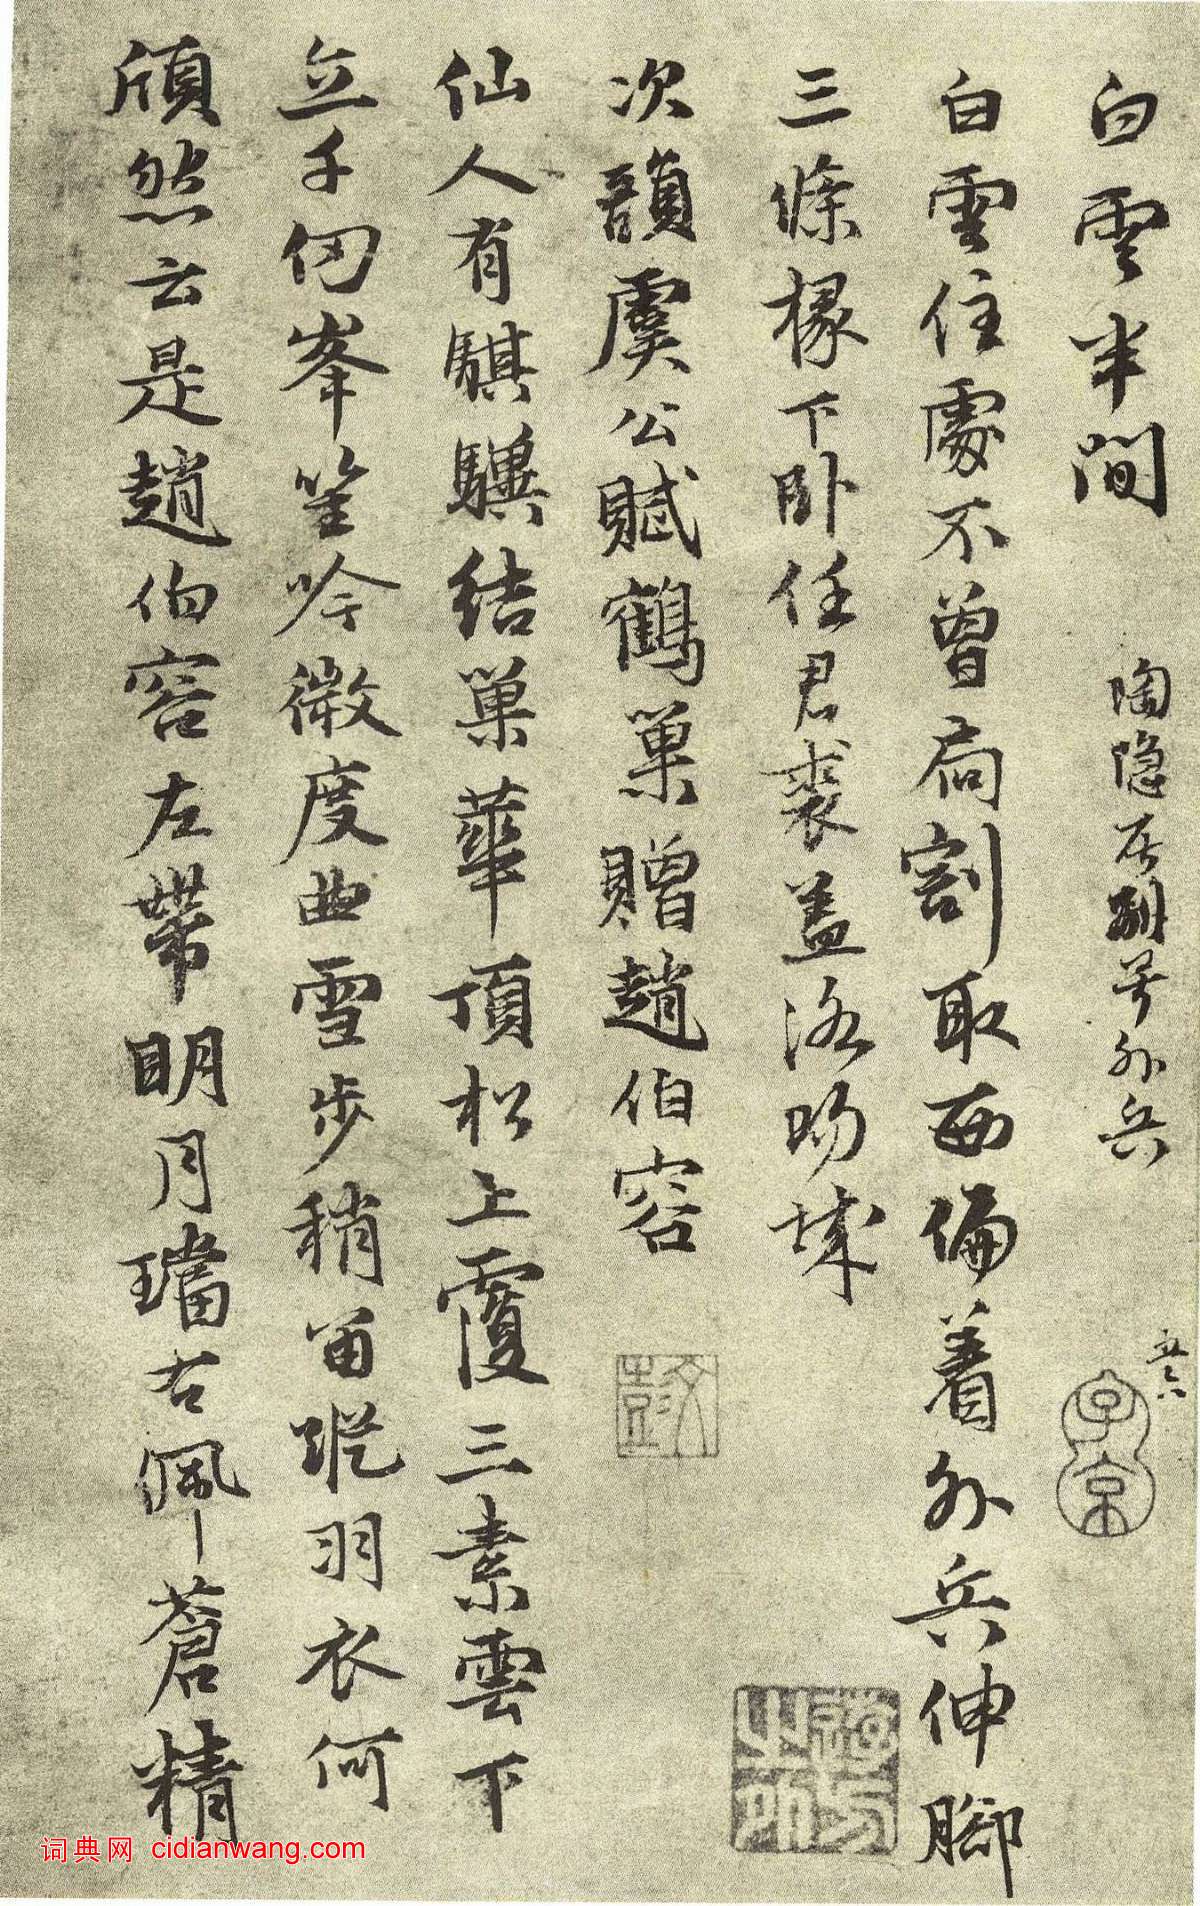 白雲半間 陶隐居別号外兵
白雲住處不曾扃割取西偏着外兵伸脚
三條椽下卧任君裘盖洛昜城
次韻虞公賦鶴巢贈趙伯容
仙人有騏驥結巢華頂松上覆三素雲下
立千仞峯笙吟微度曲雪步稍留蹤羽衣何
頎然云是趙伯容左帶明月璫右佩蒼精
子京
詞典网 cidianwang.com